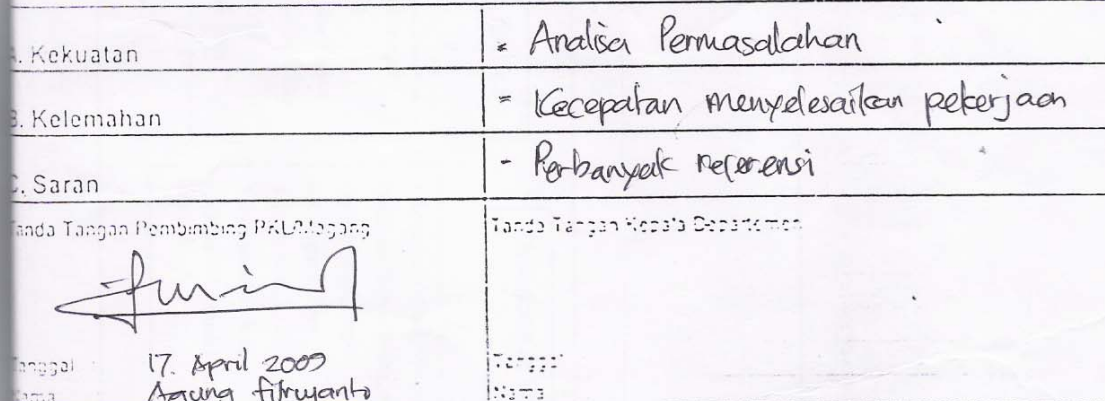 A. Kekuatan
- Analisa Permasalahan
B. Kelemahan
- Kecepatan menyelesaikan pekerjaan
C. Saran
- Perbanyak referensi
Tanda Tangan Pembimbing PKL/Magang
Tanda Tangan Kepala Departemen
Tanggal 17. April 2009
Tanggal
Nama Agung
Nama